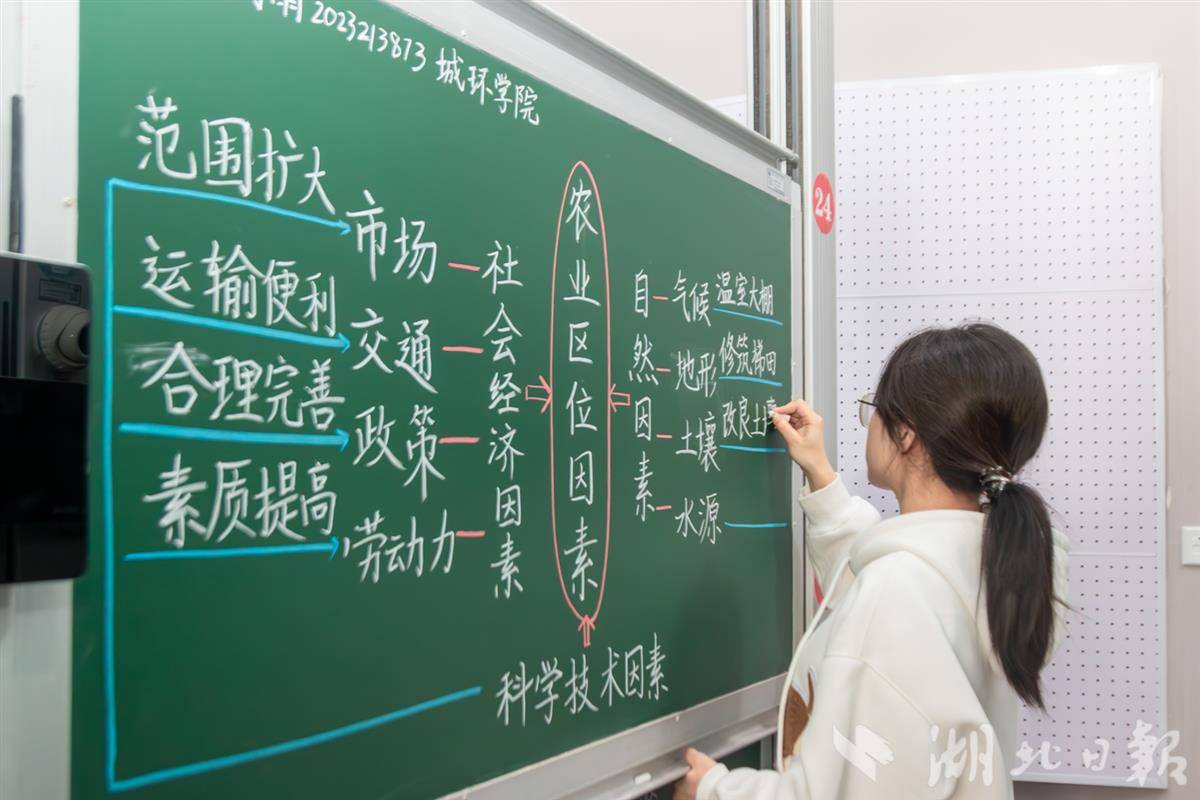 2023213873 城环学院
范围扩大
市场
运输便利
交通
合理完善
政策
素质提高
劳动力
社会经济因素
农业区位因素
自然因素
气候 温室大棚
地形 修筑梯田
土壤 改良土壤
水源
科学技术因素
24
湖北日報